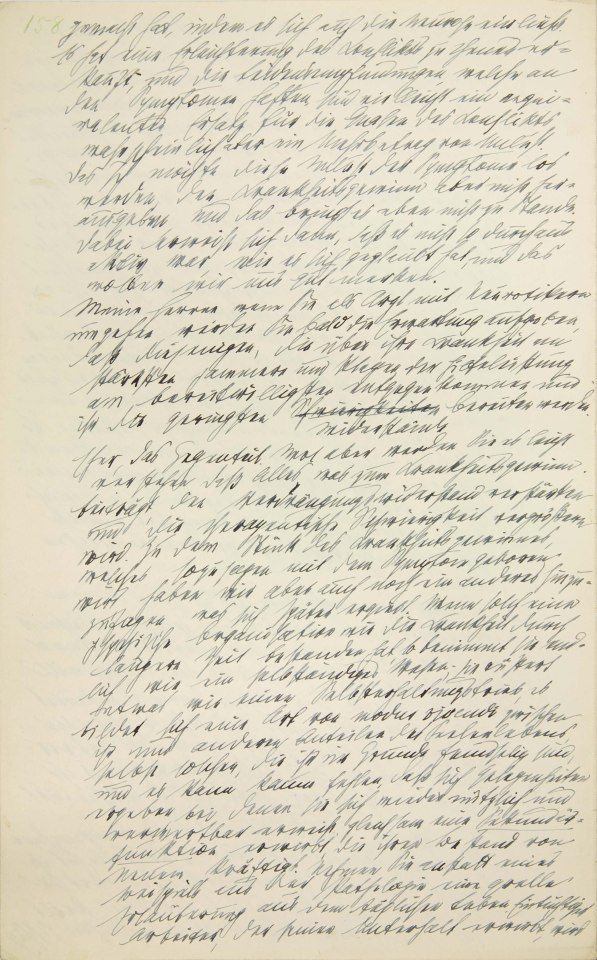 158 gemacht hat, indem es sich auf die Neurose einließ.
Es hat eine Erleichterung des Konflikts zu theuer er-
kauft, und die Leidensempfindungen welche an
den Symptomen haften sind vielleicht ein aequi-
valenter Ersatz für die Qualen des Konflikts
wahrscheinlich aber ein Mehrbetrag von Unlust.
Das Ich möchte diese Unlust der Symptome los
werden, den Krankheitsgewinn aber nicht her-
ausgeben und das bringt es eben nicht zu Stande.
Dabei erweist sich dann, daß es nicht so durchaus
aktiv war, wie es sich geglaubt hat, und das
wollen wir uns gut merken.
Meine Herren wenn Sie als Arzt mit Neurotikern
umgehen werden Sie bald die Erwartung aufgeben,
daß diejenigen, die über ihre Krankheit am
stärksten jammern und klagen der Hilfeleistung
am bereitwilligsten entgegenkommen und
ihr die geringsten Schwierigkeiten bereiten werden.
Widerstände
Eher das Gegenteil. Wol aber werden Sie es leicht
verstehen daß Alles, was zum Krankheitsgewinn
beiträgt den Verdrängungswiderstand verstärken
und die therapeutische Schwierigkeit vergrößern
wird. Zu dem Stück des Krankheitsgewinnes
welches sozusagen mit dem Symptom geboren
wird haben wir aber auch noch ein anderes hinzu-
zufügen das sich später ergiebt. Wenn solch eine
psychische Organisation wie die Krankheit durch
längere Zeit bestanden hat so benimmt sie end-
lich wie ein selbständiges Wesen; sie äußert
etwas wie einen Selbsterhaltungstrieb es
bildet sich eine Art von modus vivendi zwischen
ihr und anderen Anteilen des Seelenlebens
selbst solchen, die ihr im Grunde feindselig sind
und es kann kaum fehlen, daß sich Gelegenheiten
ergeben bei denen sie sich wieder nützlich und
verwertbar erweist, gleichsam eine Sekundär-
funktion erwirbt die ihren Bestand von
Neuem kräftigt. Nehmen Sie anstatt eines
Beispiels aus der Pathologie eine grelle
Erläuterung aus dem täglichen Leben. Ein tüchtiger
Arbeiter, der seinen Unterhalt erwirbt, wird